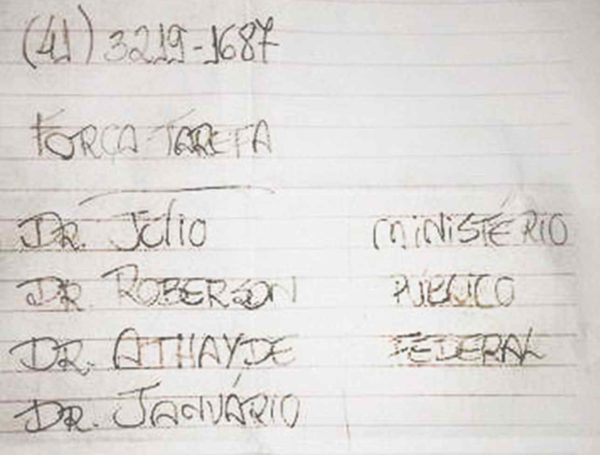 (41) 3219-1687
FORÇA-TAREFA
DR. JÚLIO MINISTÉRIO
DR ROBERSON PÚBLICO
DR. ATHAYDE FEDERAL
DR. JANUÁRIO